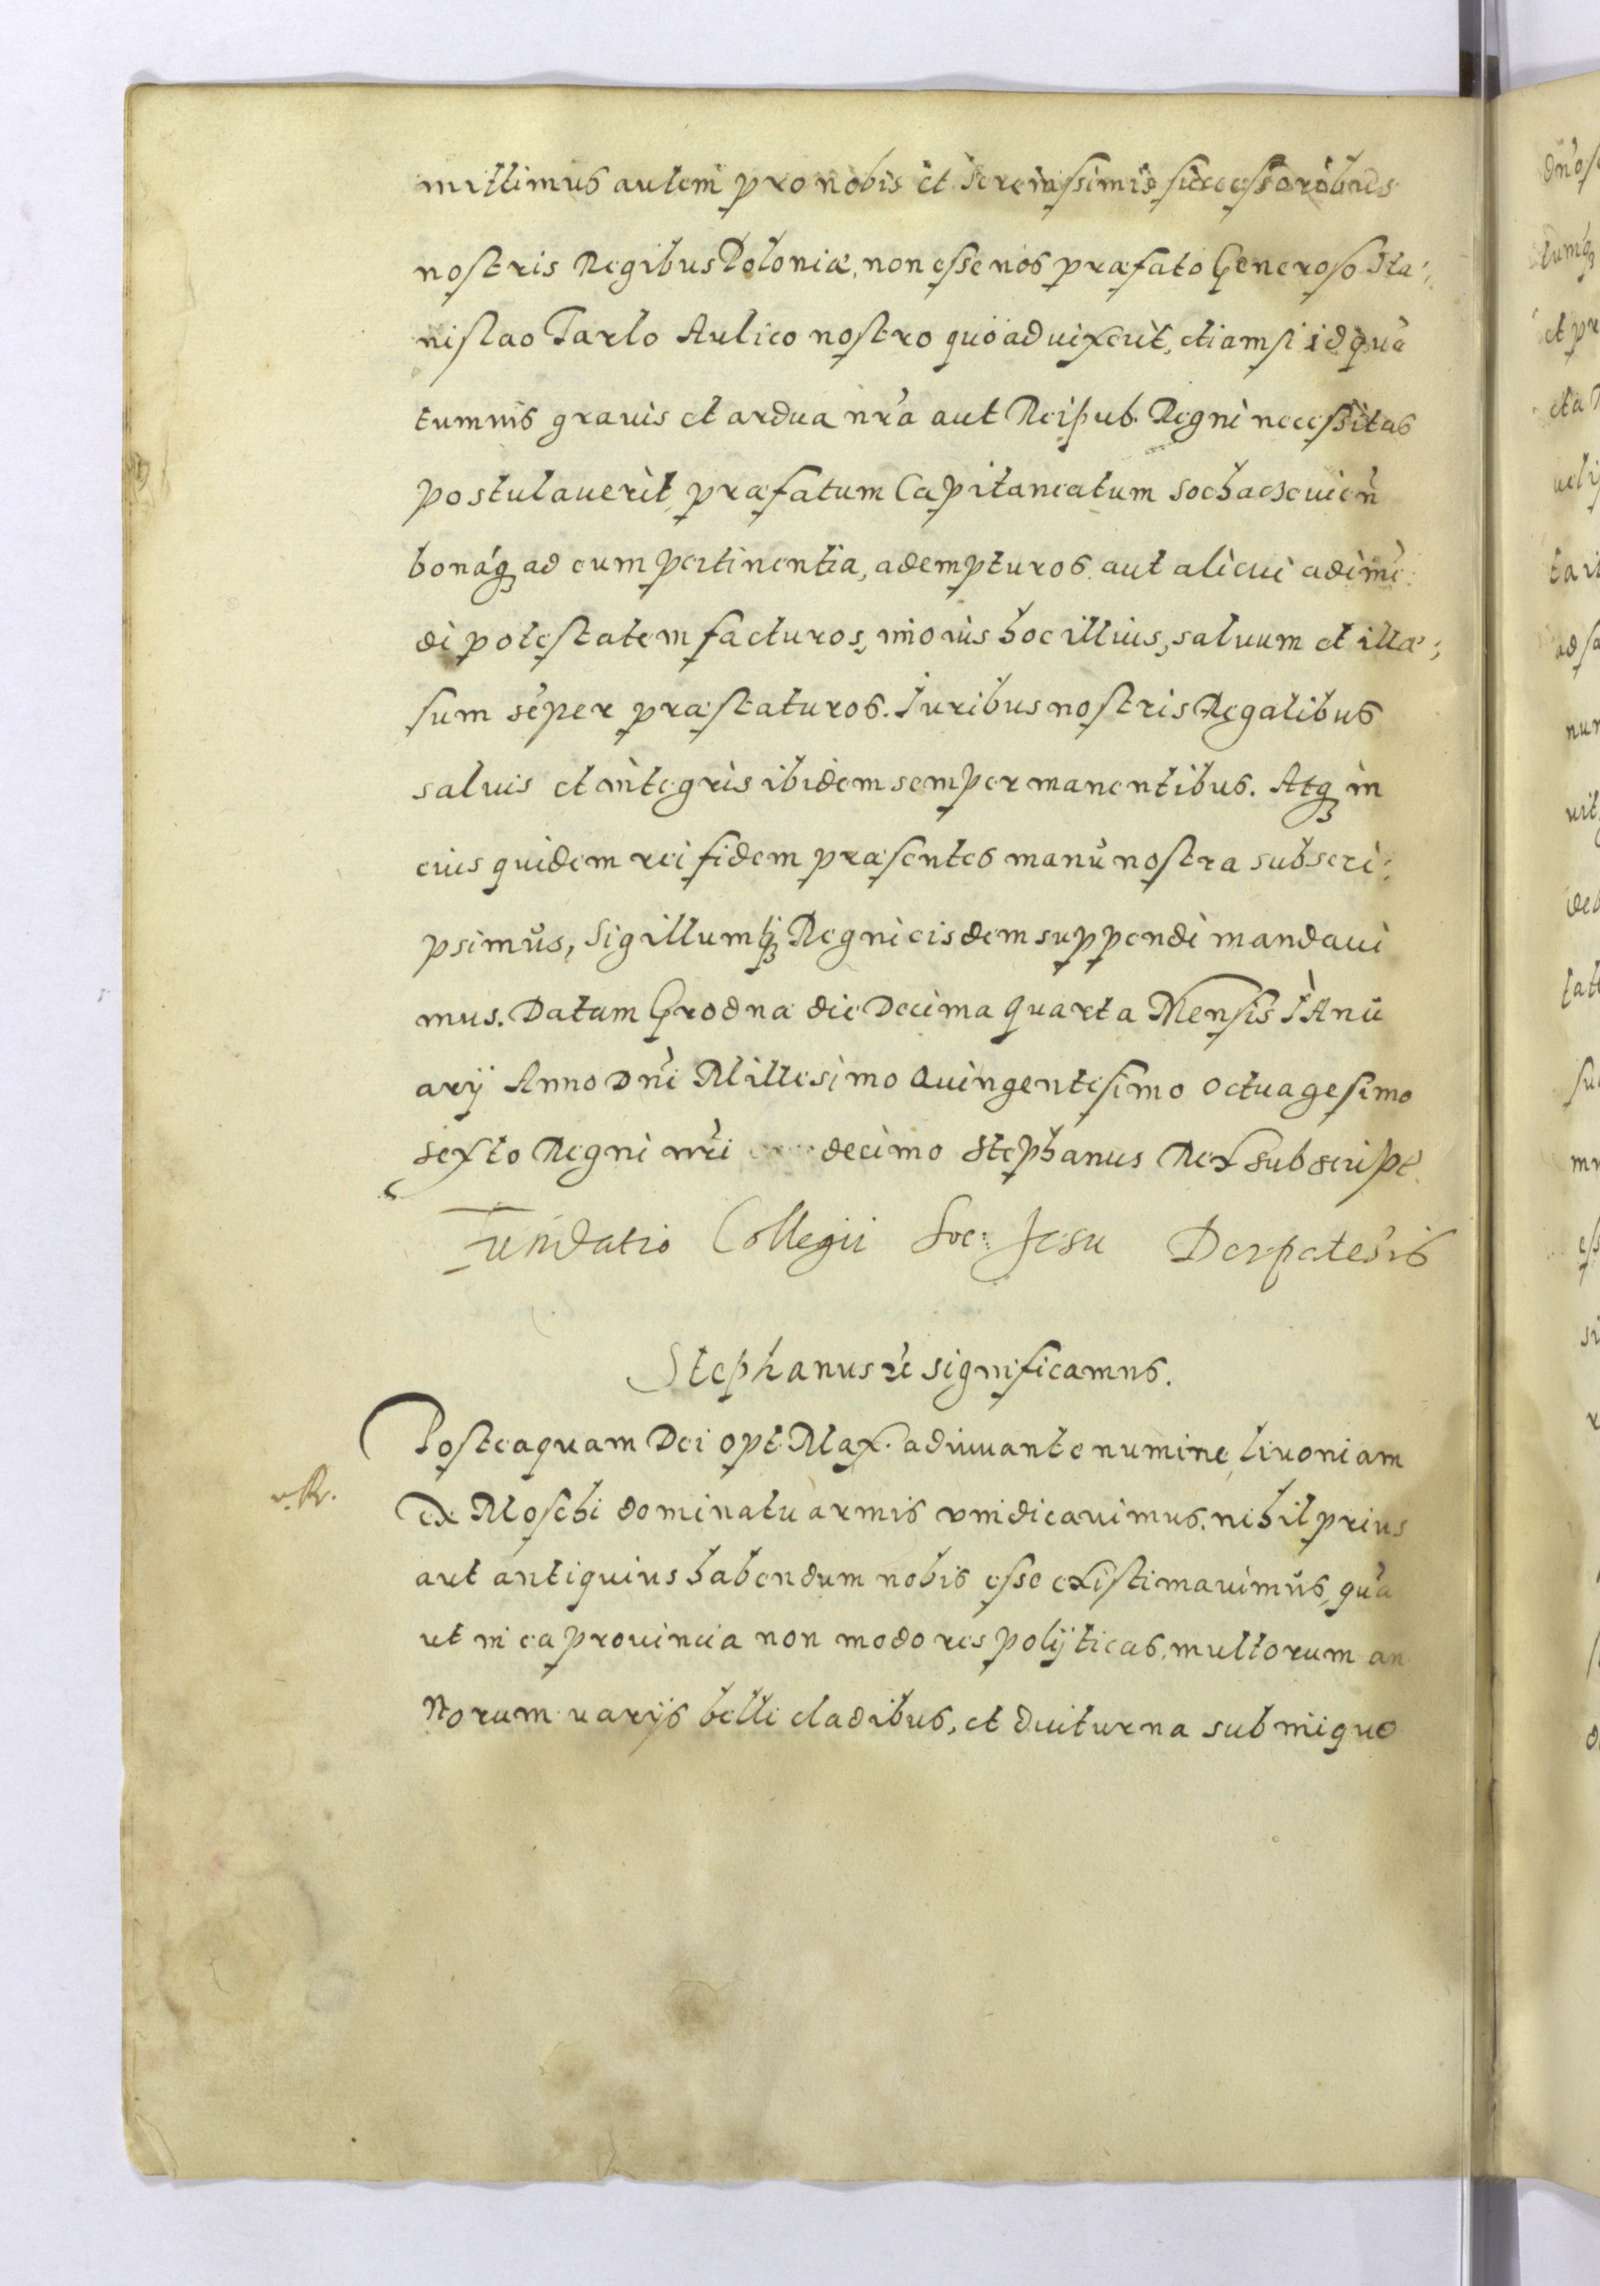 mittimus autem pro nobis et Serenissimis successoribus
nostris Regibus Poloniæ, non esse nos præfato Generoso Sta:
nislao Tarlo Aulico nostro quoad uixerit, etiamsi id quā
tumuis grauis et ardua nr̄a aut Reipub. Regni necessitas
postulauerit, præfatum Capitaneatum Sochaczeuien̄
bonaq̢ ad eum pertinentia, adempturos aut alicui adimē
di potestatem facturos, imo ius hoc illius, saluum et illæ:
sum sēper præstaturos. Iuribus nostris Regalibus
saluis et integris ibidem semper manentibus. Atq̢ in
eius quidem rei fidem præsentes manu nostra subscri:
psimus, Sigillumq̢ Regni eisdem suppendi mandaui
mus. Datum Grodnæ die Decima Quarta Mensis IAnu
arij Anno Dn̄i Millesimo Quingentesimo Octuagesimo
sexto Regni nr̄i decimo Stephanus Rex subscript
Fundatio Collegii Soc: Jesu Derpateṅsis
Stephanus &c significamus.
Posteaquam Dei opt. Max. adiuuante numine, liuoniam
Ex Moschi dominatu armis vindicauimus, nihil prius
aut antiquius habendum nobis esse existimauimus, quā
ut in ea prouincia non modo res polijticas, multorum an
norum uarijs belli cladibus, et diuturna sub iniquo
v. R.